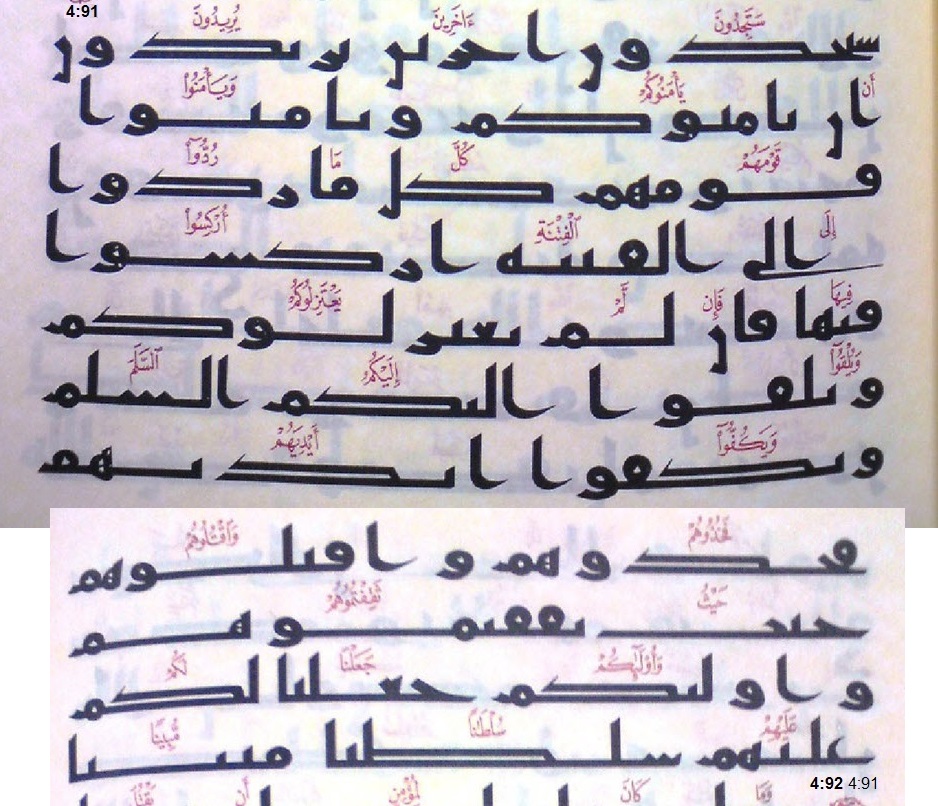 4:91
سَتَجِدُونَ ءَاخَرِينَ يُرِيدُونَ
ستجدون اخرين يريدون
أَن يَأْمَنُوكُمْ وَيَأْمَنُوا۟
ان يامنوكم ويامنوا
قَوْمَهُمْ كُلَّ مَا رُدُّوٓا۟
قومهم كل ما ردوا
إِلَى ٱلْفِتْنَةِ أُرْكِسُوا۟
الى الفتنه اركسوا
فِيهَا فَإِن لَّمْ يَعْتَزِلُوكُمْ
فيها فان لم يعتزلوكم
وَيُلْقُوٓا۟ إِلَيْكُمُ ٱلسَّلَمَ
ويلقوا اليكم السلم
وَيَكُفُّوٓا۟ أَيْدِيَهُمْ
ويكفوا ايديهم
فَخُذُوهُمْ وَٱقْتُلُوهُمْ
فخذوهم واقتلوهم
حَيْثُ ثَقِفْتُمُوهُمْ
حيث ثقفتموهم
وَأُو۟لَٰٓئِكُمْ جَعَلْنَا لَكُمْ
واوليكم جعلنا لكم
عَلَيْهِمْ سُلْطَٰنًا مُّبِينًا
عليهم سلطنا مبينا
4:92 4:91
وَمَا كَانَ لِمُؤْمِنٍ أَن يَقْتُلَ